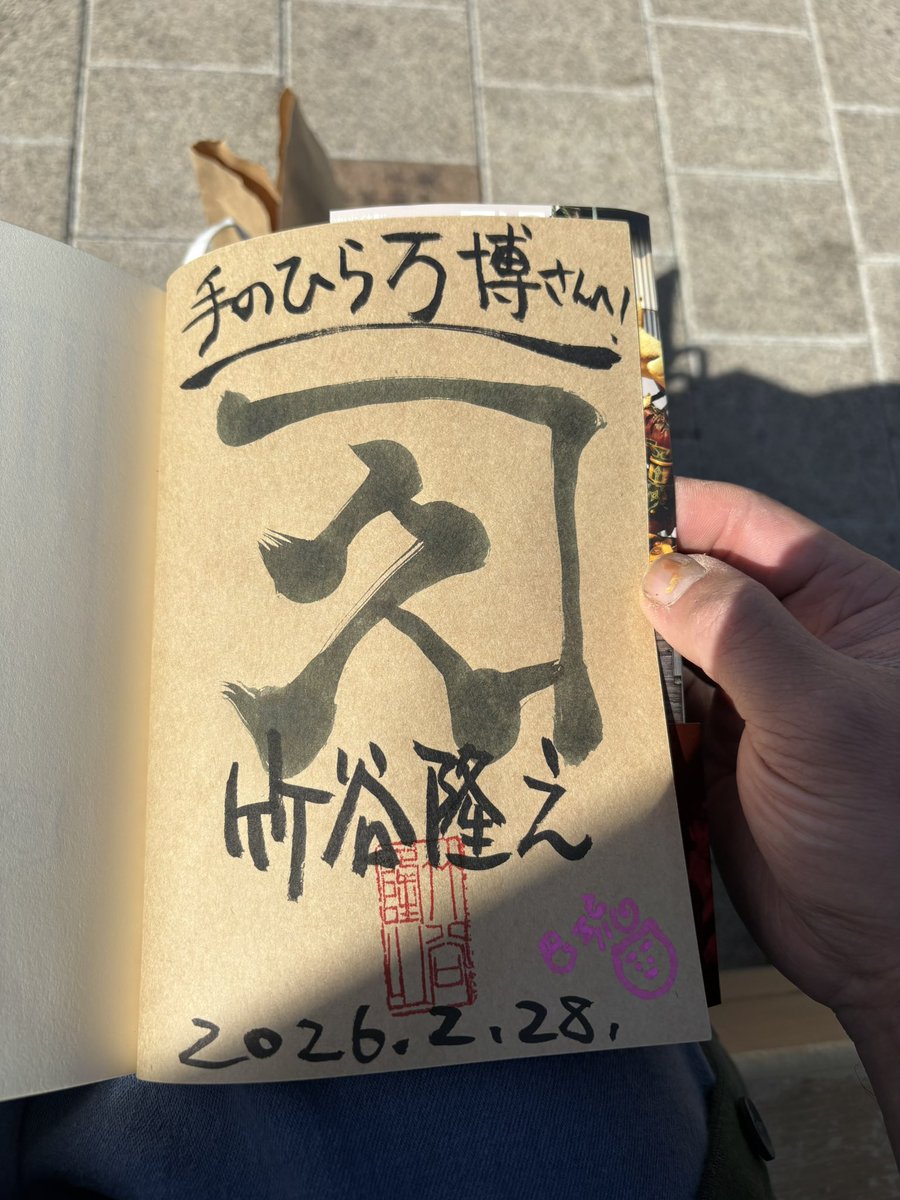 手のひら万博さんへ!
竹谷隆之
竹谷
隆之
2026.2.28.